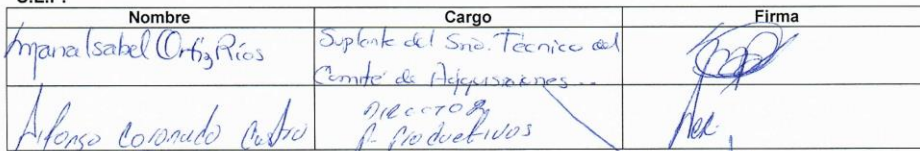 Nombre Cargo Firma
Maria Isabel Ortiz Ríos Suplente del Srio. Técnico del
Comité de Adquisiciones
Alfonso Coronado Castro DIRECTOR
P. Productivos